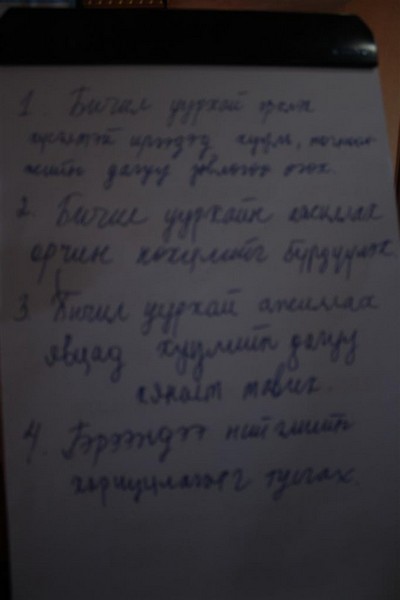 1. Бичил уурхай эрхлэх
хүсэлтэй иргэдэд хууль,
дагуу зөвлөгөө өгөх.
2. Бичил уурхайн ажиллах
орчин нөхцөлийг бүрдүүлэх.
3. Бичил уурхай ажиллах
явцад хуулийн дагуу
хяналт тавих.
4. Гэрээндээ нийгмийн
хариуцлагыг тусгах.